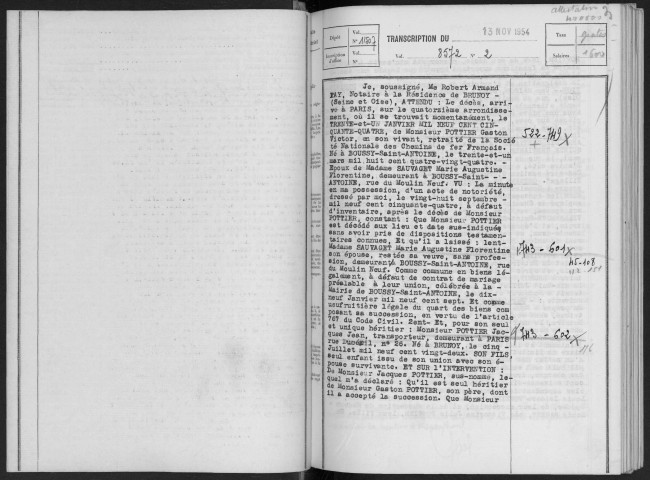 attestation
Dépôt
Vol.
N°
Inscription d'office
Vol.
N°
13 NOV 1954
TRANSCRIPTION DU
Vol. 8572 n° 2
Taxe
Salaires
Je, soussigné, Me Robert Armand
FAY, Notaire à la Résidence de BRUNOY -
(Seine et Oise), ATTENDU : Le décès, arri-
vé à PARIS, sur le quatorzième arrondisse-
ment, où il se trouvait momentanément, le
TRENTE-et-UN JANVIER MIL NEUF CENT CIN-
QUANTE-QUATRE, de Monsieur POTTIER Gaston
Victor, en son vivant, retraité de la Socié
té Nationale des Chemins de fer Français.
Né à BOUSSY-Saint-ANTOINE, le trente-et-un
mars mil huit cent quatre-vingt-quatre. -
Epoux de Madame SAUVAGET Marie Augustine
Florentine, demeurant à BOUSSY-Saint- - -
ANTOINE, rue du Moulin Neuf. VU : La minute
en ma possession, d'un acte de notoriété,
dressé par moi, le vingt-huit septembre -
mil neuf cent cinquante-quatre, à défaut
d'inventaire, après le décès de Monsieur
POTTIER, constant : Que Monsieur POTTIER
est décédé aux lieu et date sus-indiqués
sans avoir pris de dispositions testamen-
taires connues. Et qu'il a laissé : 1ent-
Madame SAUVAGET Marie Augustine Florentine
son épouse, restée sa veuve, sans profes-
sion, demeurant à BOUSSY-Saint-ANTOINE, rue
du Moulin Neuf. Comme commune en biens lé-
galement, à défaut de contrat de mariage
préalable à leur union, célébrée à la -
Mairie de BOUSSY-Saint-ANTOINE, le dix-
neuf Janvier mil neuf cent sept. Et comme
usufruitière légale du quart des biens com
posant sa succession, en vertu de l'article
767 du Code Civil. 2ent- Et, pour son seul
et unique héritier : Monsieur POTTIER Jac-
ques Jean, transporteur, demeurant à PARIS
rue n° 26. Né à BRUNOY, le cinq -
Juillet mil neuf cent vingt-deux. SON FILS,
seul enfant issu de son union avec son é-
pouse survivante. ET SUR L'INTERVENTION :
De Monsieur Jacques POTTIER, sus-nommé, le-
quel m'a déclaré : Qu'il est seul héritier
de Monsieur Gaston POTTIER, son père, dont
il a accepté la succession. Que Monsieur
532-749
743-601
45-108
743-602